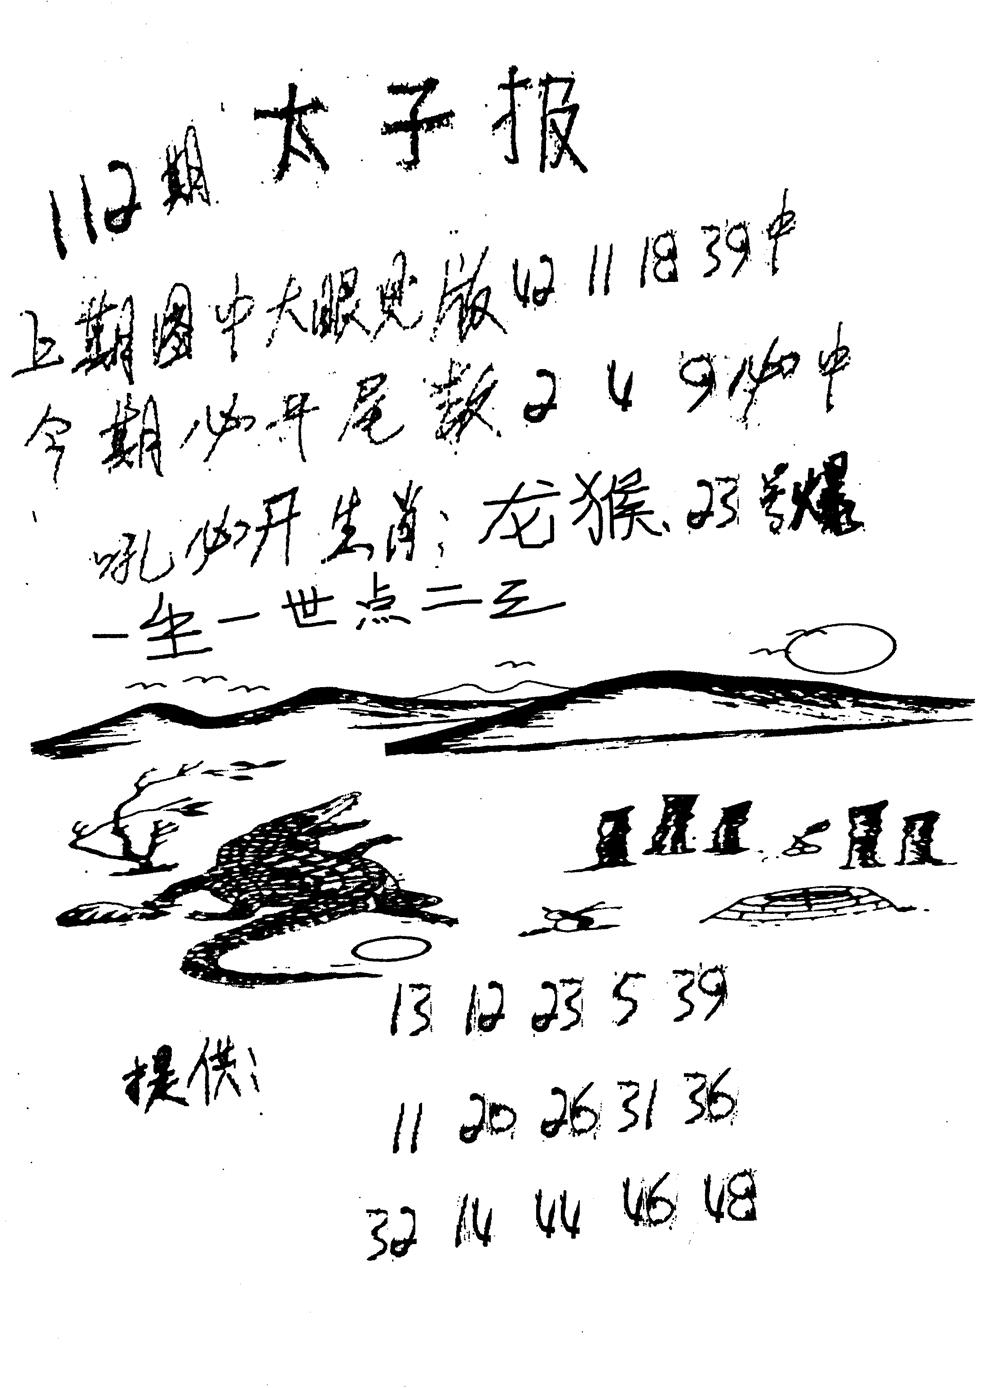 太子报
112期
上期图中大眼见版42 11 18 39中
今期必开尾数2 4 9必中
吼必开生肖:龙猴、23号爆
一生一世点二三
13 12 23 5 39
提供:
11 20 26 31 36
32 14 44 46 48